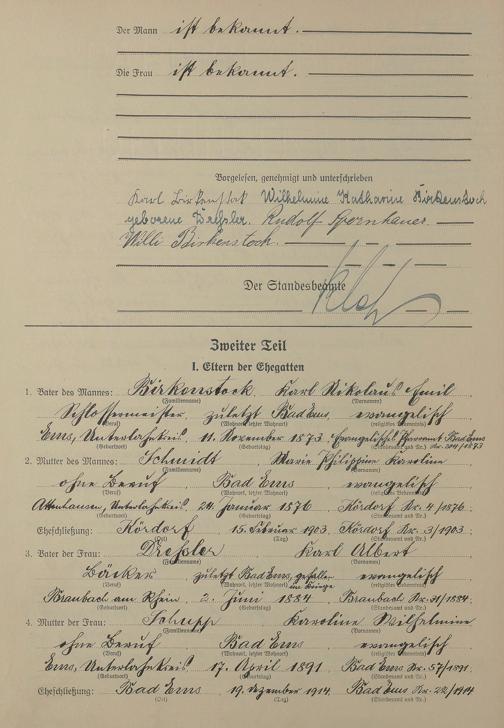 Der Mann ist bekannt.
Die Frau ist bekannt.
Vorgelesen, genehmigt und unterschrieben
Karl Birkenstock Wilhelmine Katharine Birkenstock
geborene Dreßler. Rudolf
Willi Birkenstock.
Der Standesbeamte
Zweiter Teil
I. Eltern der Ehegatten
1. Vater des Mannes: Birkenstock Karl Nikolaus Emil
(Familienname) (Vornamen)
Schlossermeister zuletzt Bad Ems evangelisch
(Beruf) (Wohnort, letzter Wohnort) (religiöses Bekenntnis)
Ems, Unterlahnkreis 11. November 1873 Evangelisches Pfarramt Bad Ems Nr. 204/1873
(Geburtsort) (Geburtstag) (Standesamt und Nr.)
2. Mutter des Mannes: Schmidt Marie Philippine Karoline
(Familienname) (Vornamen)
ohne Beruf Bad Ems evangelisch
(Beruf) (Wohnort, letzter Wohnort) (religiöses Bekenntnis)
Attenhausen, Unterlahnkreis 24. Januar 1876 Kördorf Nr. 4/1876
(Geburtsort) (Geburtstag) (Standesamt und Nr.)
Eheschließung: Kördorf 15. Februar 1903 Kördorf Nr. 3/1903
(Ort) (Tag) (Standesamt und Nr.)
3. Vater der Frau: Dreßler Karl Albert
(Familienname) (Vornamen)
Bäcker zuletzt Bad Ems, gefallen im Kriege evangelisch
(Beruf) (Wohnort, letzter Wohnort) (religiöses Bekenntnis)
Braubach am Rhein 2. Juni 1884 Braubach Nr. 31/1884
(Geburtsort) (Geburtstag) (Standesamt und Nr.)
4. Mutter der Frau: Schupp Karoline Wilhelmine
(Familienname) (Vornamen)
ohne Beruf Bad Ems evangelisch
(Beruf) (Wohnort, letzter Wohnort) (religiöses Bekenntnis)
Ems, Unterlahnkreis 17. April 1891 Bad Ems Nr. 57/1891
(Geburtsort) (Geburtstag) (Standesamt und Nr.)
Eheschließung: Bad Ems 19. Dezember 1914 Bad Ems Nr. 22/1914
(Ort) (Tag) (Standesamt und Nr.)